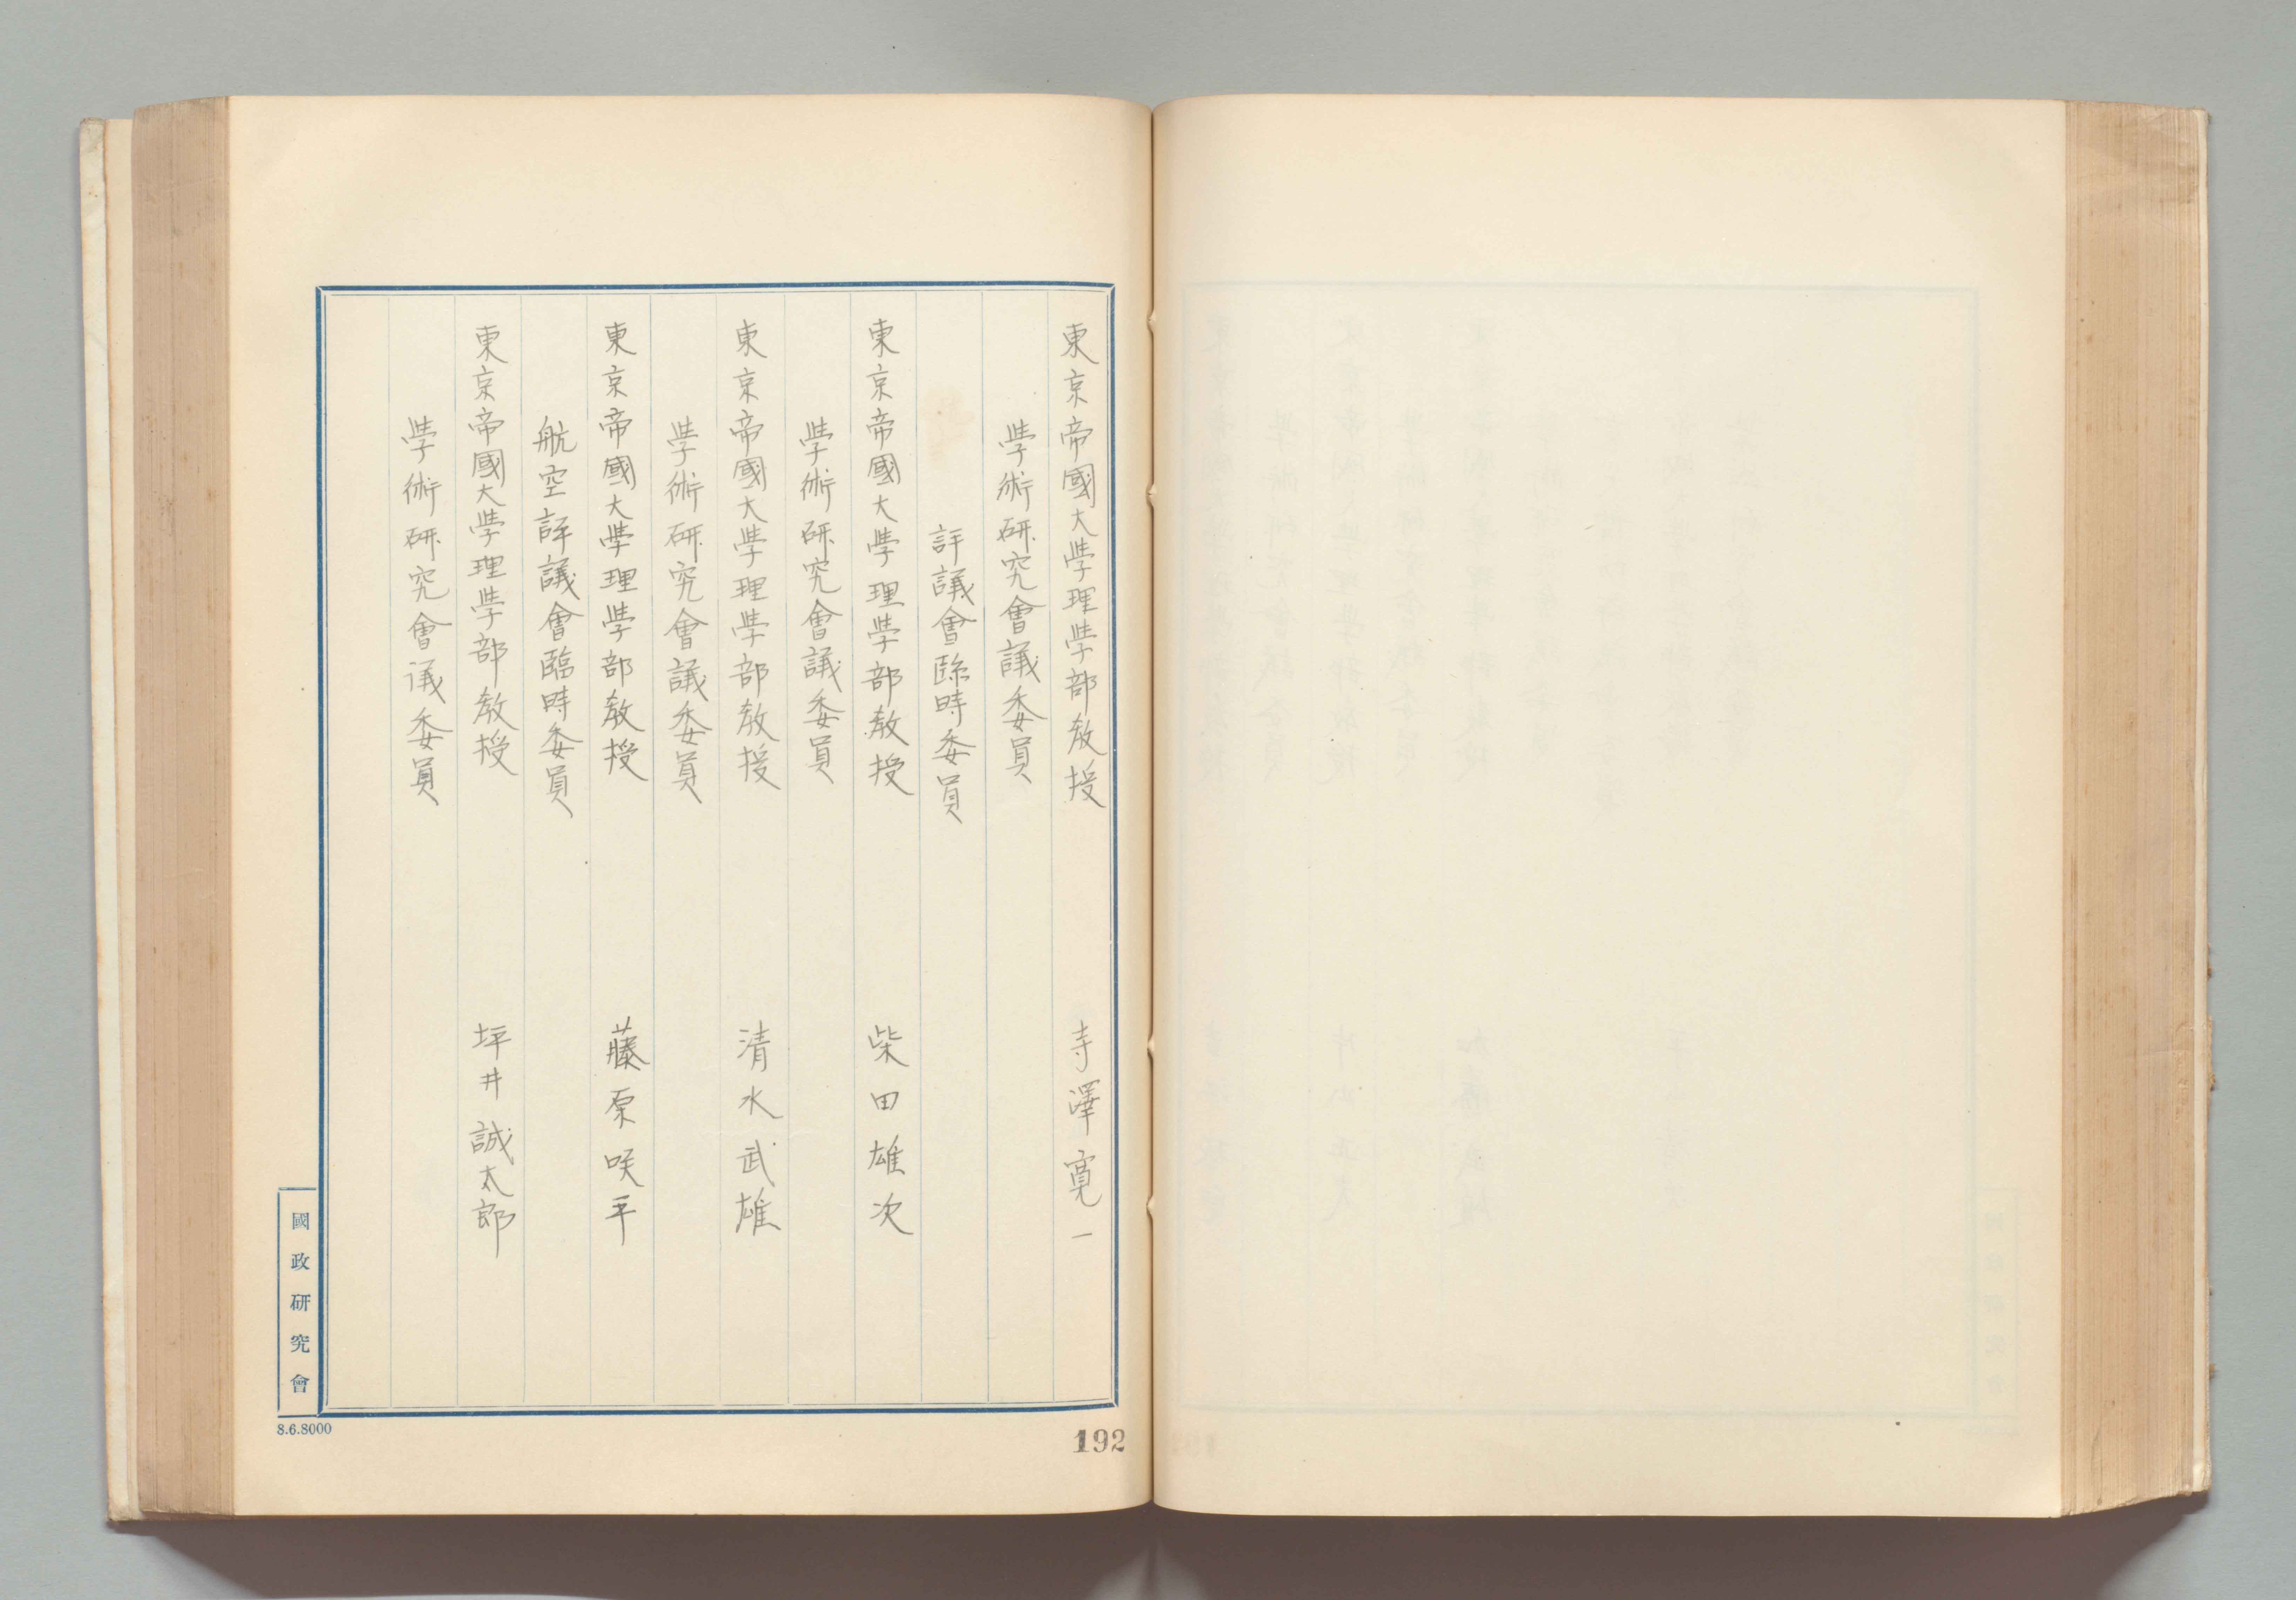 東京帝國大學理學部教授 寺澤寛一
學術研究會議委員
評議會臨時委員
東京帝國大學理學部教授 柴田雄次
學術研究會議委員
東京帝國大學理學部教授 清水武雄
學術研究會議委員
東京帝國大學理學部教授 藤原咲平
航空評議會臨時委員
東京帝國大學理學部教授 坪井誠太郎
學術研究會議委員
國政研究會
8.6.8000
192